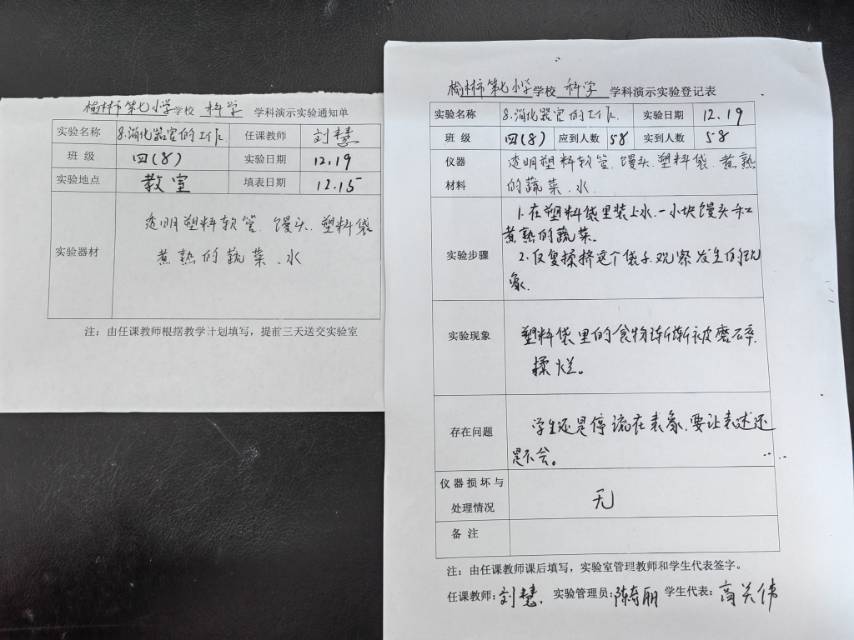 榆林市第七小学学校 科学 学科演示实验通知单
实验名称 8.消化器官的工作 任课教师 刘慧
班 级 四(8) 实验日期 12.19
实验地点 教室 填表日期 12.15
实验器材 透明塑料软管、馒头、塑料袋
煮熟的蔬菜、水
注:由任课教师根据教学计划填写,提前三天送交实验室
榆林市第七小学学校 科学 学科演示实验登记表
实验名称 8.消化器官的工作. 实验日期 12.19
班 级 四(8) 应到人数 58 实到人数 58
仪器 透明塑料软管、馒头、塑料袋、煮熟
材料 的蔬菜、水
实验步骤 1.在塑料袋里装上水、一小块馒头和
煮熟的蔬菜。
2.反复揉挤这个袋子,观察发生的现
象.
实验现象 塑料袋里的食物渐渐被磨碎,
揉烂。
存在问题 学生还是停留在表象,要让表述还
是不会。
仪器损坏与
处理情况 无
备 注
注:由任课教师课后填写,实验室管理教师和学生代表签字。
任课教师:刘慧. 实验管理员:陈 丽 学生代表:高 伟